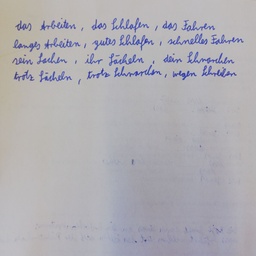 das Arbeiten, das Schlafen, das Fahren
langes Arbeiten, gutes Schlafen, schnelles Fahren
sein Lachen, ihr Lächeln, dein Schnarchen
trotz Lächeln, trotz Schnarchen, wegen Schreien